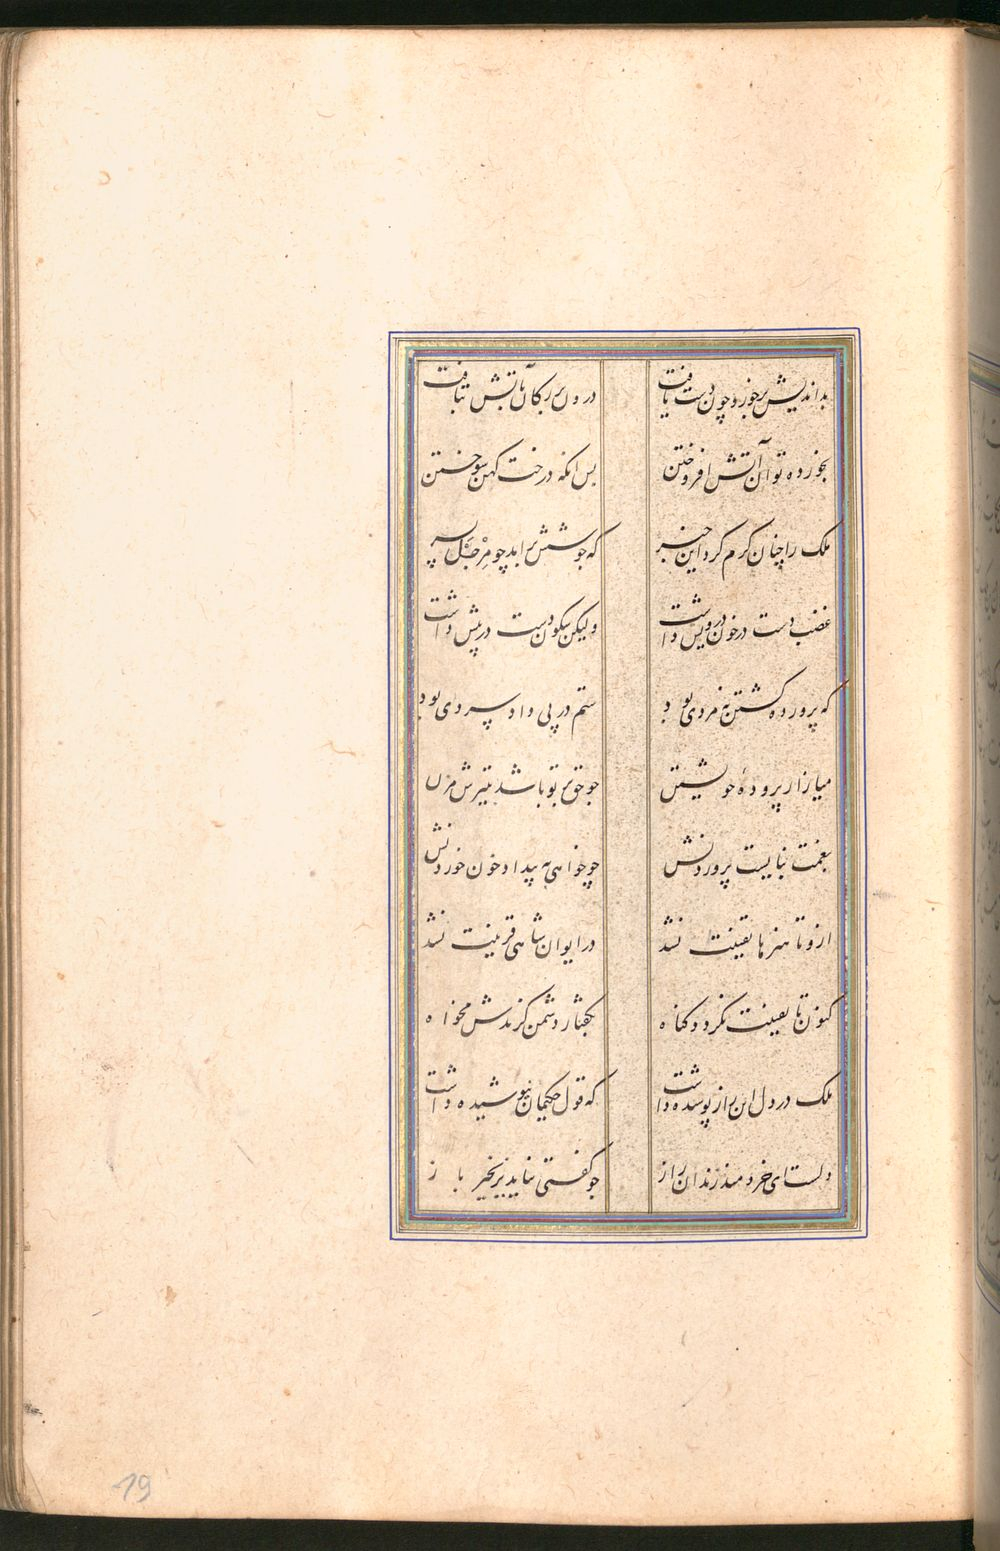 بداندیش بر خورده چون دست یافت
درون بزرگان بآتش بتافت
بخورده توان آتش افروختن
پس آنکه درخت کهن سوختن
ملک را چنان گرم کرد این خبر
که جوشش برآمد چو مرجل بسر
غضب دست در خون درویش داشت
ولیکن سکون دست در پیش داشت
که پرورده کشتن نه مردی بود
ستم در پی داد سردی بود
میازار پروردهٔ خویشتن
چو حق بر تو باشد بتیرش مزن
بنعمت نبایست پروردنش
چو خواهی به بیداد خون خوردنش
ازو تا هنرها یقینت نشد
در ایوان شاهی قرینت نشد
کنون تا یقینت نکردد کناه
بکفتار دشمن کزندش مخواه
ملک در دل این راز پوشیده داشت
که قول حکیمان نیوشیده داشت
دلست ای خردمند زندان راز
چو کفتی نیاید بزنجیر باز
19